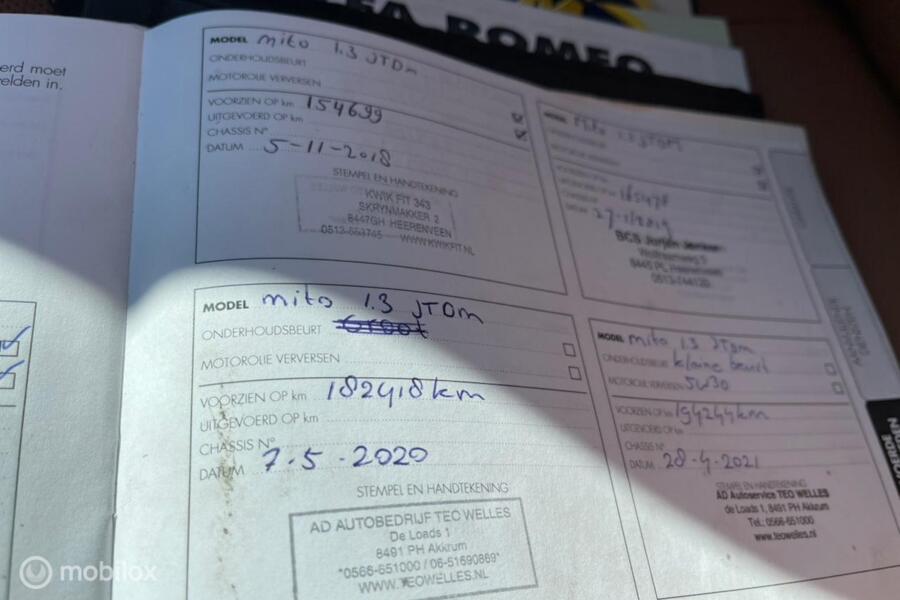 erd moet
elden in.
ALFA ROMEO
MODEL mito 1.3 JTDm
ONDERHOUDSBEURT
MOTOROLIE VERVERSEN
VOORZIEN OP km 154699
UITGEVOERD OP km
CHASSIS N°
DATUM 5-11-2018
STEMPEL EN HANDTEKENING
KWIK FIT 343
SKRYNMAKKER 2
8447GH HEERENVEEN
WWW.KWIKFIT.NL
Mito 1.3 JTDM
165478
27-1/2019
8445 PL Heerenveen
0513-744120
MODEL mito 1.3 JTDm
ONDERHOUDSBEURT Groot
MOTOROLIE VERVERSEN
VOORZIEN OP km 182418km
UITGEVOERD OP km
CHASSIS N°
DATUM 7-5-2020
STEMPEL EN HANDTEKENING
AD AUTOBEDRIJF TEO WELLES
De Loads 1
8491 PH Akkrum
*0566-651000 / 06-51690869*
WWW.TEOWELLES.NL
MODEL mito 1.3 JTDm
ONDERHOUDSBEURT kleine beurt
MOTOROLIE VERVERSEN 5W30
VOORZIEN OP km 194244km
UITGEVOERD OP km
CHASSIS N°
DATUM 28-4-2021
STEMPEL EN HANDTEKENING
AD Autoservice TEO WELLES
de Loads 1, 8491 PH Akkrum
Tel.: 0566-651000
www.teowelles.nl
mobilox